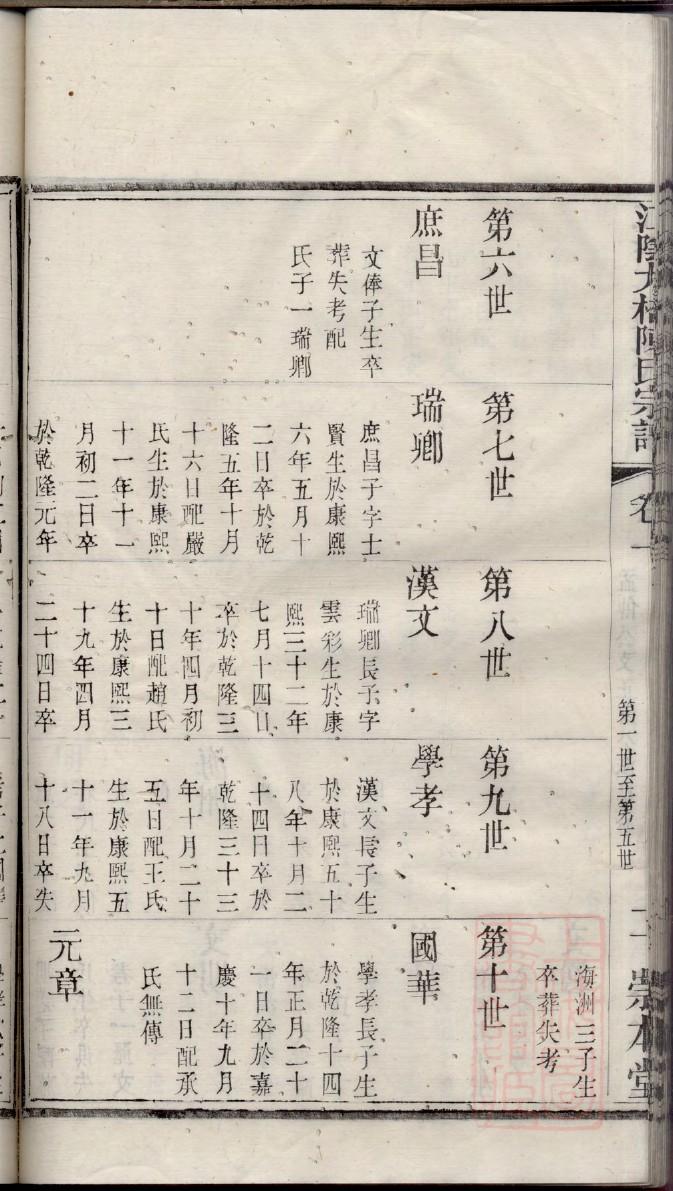 江陰九橋陳氏宗譜
卷一
第一世至第五世
崇本堂
海洲三子生
卒葬失考
第六世
庶昌
文俸子生卒
葬失考配
氏子一瑞卿
第七世
瑞卿
庶昌子字士
賢生於康熙
六年五月十
二日卒於乾
隆五年十月
十六日配嚴
氏生於康熙
十一年十一
月初二日卒
於乾隆元年
第八世
漢文
瑞卿長子字
雲彩生於康
熙三十二年
七月十四日
卒於乾隆三
十年四月初
十日配趙氏
生於康熙三
十九年四月
二十四日卒
第九世
學孝
漢文長子生
於康熙五十
八年十月二
十四日卒於
乾隆三十三
年十月二十
五日配王氏
生於康熙五
十一年九月
十八日卒失
第十世
國華
學孝長子生
於乾隆十四
年正月二十
一日卒於嘉
慶十年九月
十二日配承
氏無傳
元章